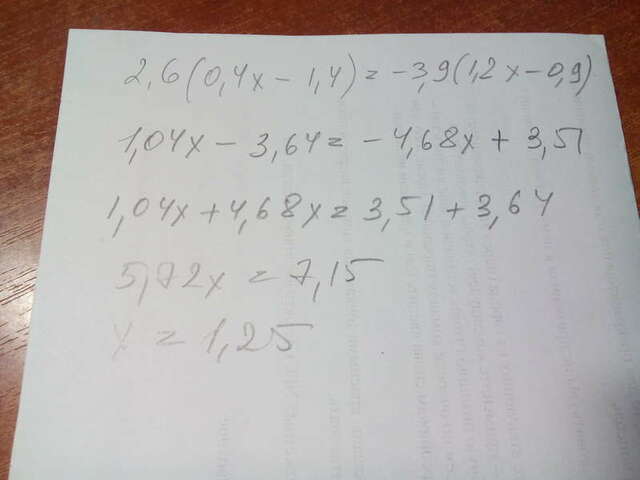 2,6(0,4x - 1,4) = -3,9(1,2x - 0,9)
1,04x - 3,64 = -4,68x + 3,51
1,04x + 4,68x = 3,51 + 3,64
5,72x = 7,15
x = 1,25